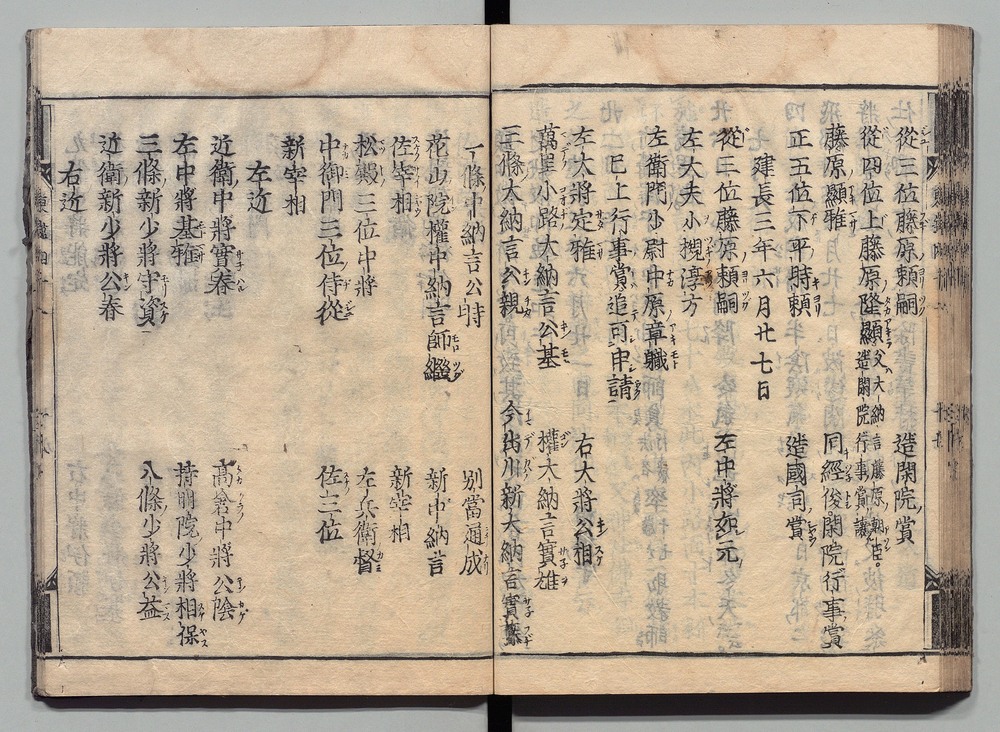 從三位藤原頼嗣 造閑院賞
從四位上藤原隆顯 父大納言藤原朝臣。造閑院行事賞讓
藤原顯雅 同經俊閑院行事賞
正五位下平時頼 造國司賞
建長三年六月廿七日
從三位藤原頼嗣 左中將
左大夫小槻淳方
左衛門少尉中原章職
已上行事賞追可申請
左大將定雅 右大將公相
萬里小路大納言公基 權大納言實雄
三條大納言公親 今出川新大納言實藤
一條中納言公時 別當通成
花山院權中納言師繼 新中納言
佐宰相 新宰相
松殿三位中將 左兵衛督
中御門三位侍從 佐三位
新宰相
左近
近衛中將實春 高倉中將公陰
左中將基雅 持明院少將相保
三條新少將守資 八條少將公益
近衛新少將公春
右近